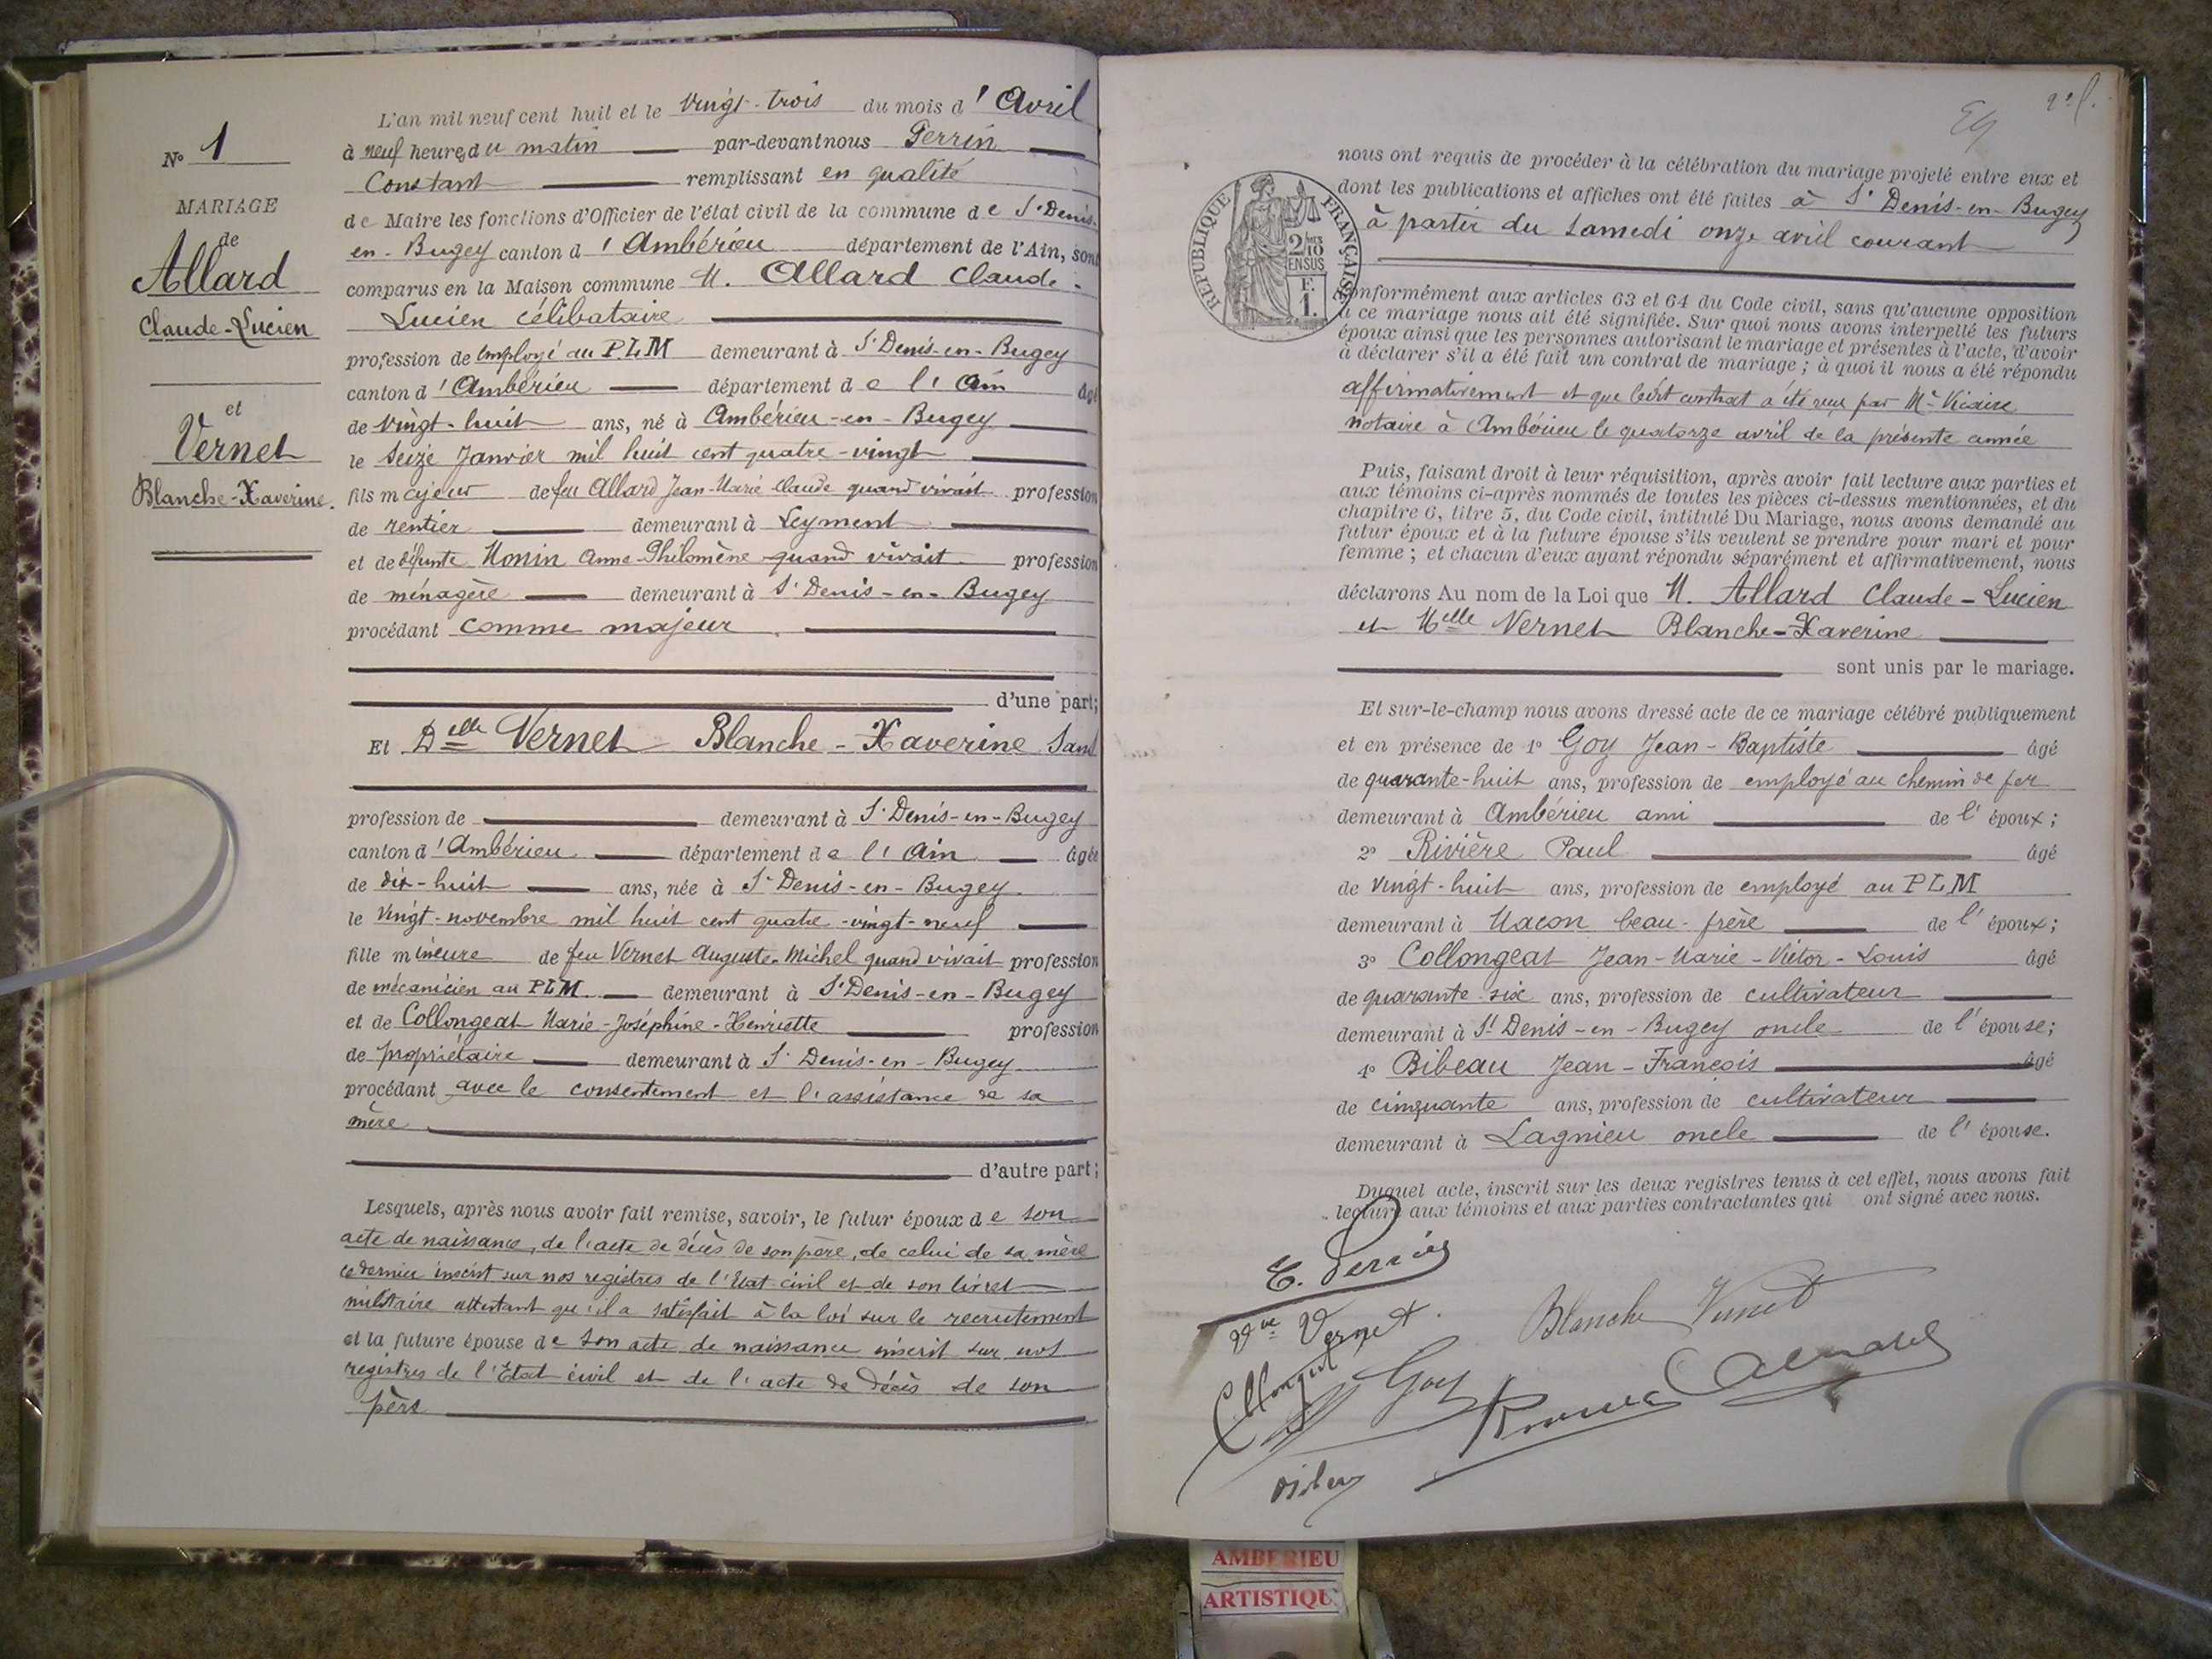 N° 1
MARIAGE
de
Allard
Claude-Lucien
et
Vernet
Blanche-Xaverine.
L'an mil neuf cent huit et le vingt-trois du mois d'Avril
à neuf heures du matin par-devant nous Perrin
Constant remplissant en qualité
de Maire les fonctions d'Officier de l'état civil de la commune de St Denis-
en-Bugey canton d'Ambérieu département de l'Ain, sont
comparus en la Maison commune M. Allard Claude-
Lucien célibataire
profession de employé au P.L.M demeurant à St Denis-en-Bugey
canton d'Ambérieu département de l'Ain âgé
de vingt-huit ans, né à Ambérieu-en-Bugey
le seize Janvier mil huit cent quatre-vingt
fils majeur de feu Allard Jean-Marie Claude quand vivait profession
de rentier demeurant à Leyment
et de défunte Monin Anne-Philomène quand vivait profession
de ménagère demeurant à St Denis-en-Bugey
procédant comme majeur
d'une part;
Et Delle Vernet Blanche-Xaverine Sans
profession de demeurant à St Denis-en-Bugey
canton d'Ambérieu département de l'Ain âgée
de dix-huit ans, née à St Denis-en-Bugey
le vingt-novembre mil huit cent quatre-vingt-neuf
fille mineure de feu Vernet Auguste-Michel quand vivait profession
de mécanicien au PLM demeurant à St Denis-en-Bugey
et de Collongeat Marie-Joséphine-Henriette profession
de propriétaire demeurant à St Denis-en-Bugey
procédant avec le consentement et l'assistance de sa
mère
d'autre part;
Lesquels, après nous avoir fait remise, savoir, le futur époux de son
acte de naissance, de l'acte de décès de son père, de celui de sa mère
ce dernier inscrit sur nos registres de l'Etat civil et de son livret
militaire attestant qu'il a satisfait à la loi sur le recrutement
et la future épouse de son acte de naissance inscrit sur nos
registres de l'Etat civil et de l'acte de décès de son
père
nous ont requis de procéder à la célébration du mariage projeté entre eux et
dont les publications et affiches ont été faites à St Denis-en-Bugey
à partir du samedi onze avril courant
REPUBLIQUE FRANÇAISE
2/10
EN SUS
F.
1.
conformément aux articles 63 et 64 du Code civil, sans qu'aucune opposition
à ce mariage nous ait été signifiée. Sur quoi nous avons interpellé les futurs
époux ainsi que les personnes autorisant le mariage et présentes à l'acte, d'avoir
à déclarer s'il a été fait un contrat de mariage; à quoi il nous a été répondu
affirmativement et que ledit contrat a été reçu par Me Vicaire
notaire à Ambérieu le quatorze avril de la présente année
Puis, faisant droit à leur réquisition, après avoir fait lecture aux parties et
aux témoins ci-après nommés de toutes les pièces ci-dessus mentionnées, et du
chapitre 6, titre 5, du Code civil, intitulé Du Mariage, nous avons demandé au
futur époux et à la future épouse s'ils veulent se prendre pour mari et pour
femme; et chacun d'eux ayant répondu séparément et affirmativement, nous
déclarons Au nom de la Loi que M. Allard Claude-Lucien
et Melle Vernet Blanche-Xaverine
sont unis par le mariage.
Et sur-le-champ nous avons dressé acte de ce mariage célébré publiquement
et en présence de 1° Goy Jean-Baptiste âgé
de quarante-huit ans, profession de employé au chemin de fer
demeurant à Ambérieu ami de l'époux;
2° Rivière Paul âgé
de vingt-huit ans, profession de employé au PLM
demeurant à Macon beau-frère de l'époux;
3° Collongeat Jean-Marie-Victor-Louis âgé
de quarante-six ans, profession de cultivateur
demeurant à St Denis-en-Bugey oncle de l'épouse;
4° Bibeau Jean-François âgé
de cinquante ans, profession de cultivateur
demeurant à Lagnieu oncle de l'épouse.
Duquel acte, inscrit sur les deux registres tenus à cet effet, nous avons fait
lecture aux témoins et aux parties contractantes qui ont signé avec nous.
C. Perrin
Vve Vernet.
Blanche Vernet
Collongeat
Goy
AMBERIEU
ARTISTIQU